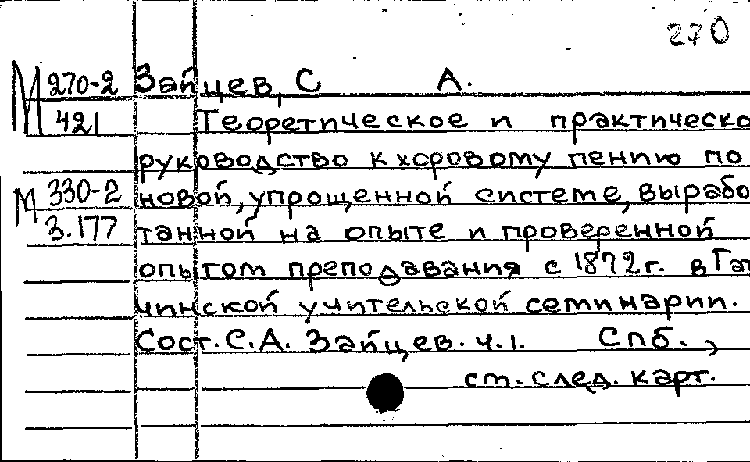 270
М 270-2 Зайцев, С А.
421 Теоретическое и практическо
руководство к хоровому пению по
М 330-2 новой, упрощенной системе, вырабо
3.177 танной на опыте и проверенной
опытом преподавания с 1872 г. в Гат
чинской учительской семинарии.
Сост. С.А. Зайцев. ч.1. Спб.,
см. след. карт.